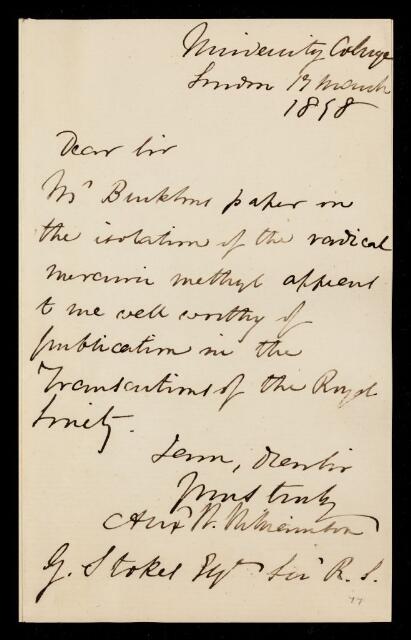 University College
London 17 March
1858
Dear Sir
Mr Bucktons paper on
the isolation of the radical
mercuric methyl appears
to me well worthy of
publication in the
Transactions of the Royal
Society.
I am, Dear Sir
Yours truly
Alexr W. Williamson
G. Stokes Esqr Sec R. S.